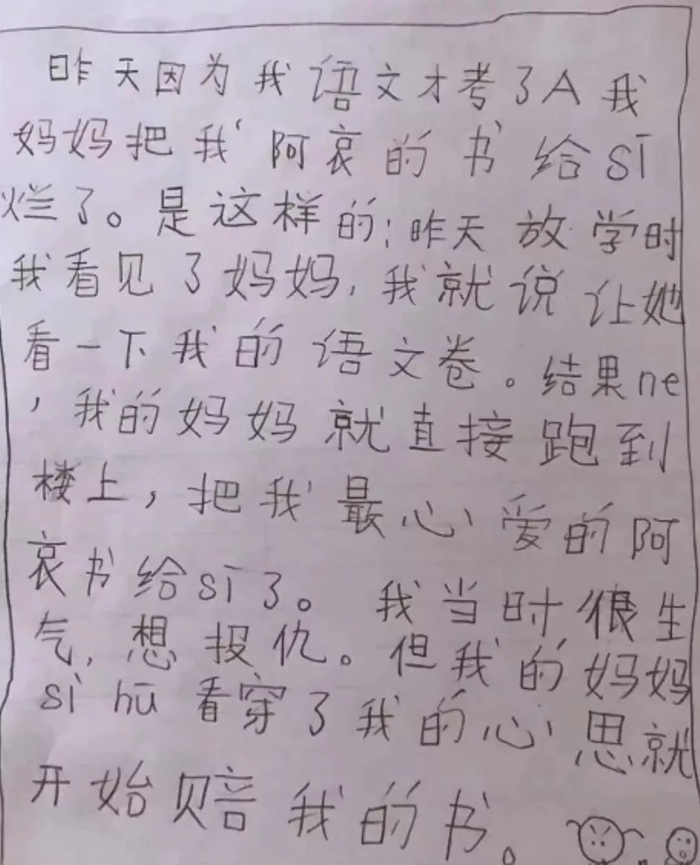 昨天因为我语文才考了A我
妈妈把我阿哀的书给sī
烂了。是这样的:昨天放学时
我看见了妈妈,我就说让她
看一下我的语文卷。结果ne
,我的妈妈就直接跑到
楼上,把我最心爱的阿
哀书给sī了。我当时很生
气,想报仇。但我的妈妈
sì hū看穿了我的心思就
开始赔我的书。